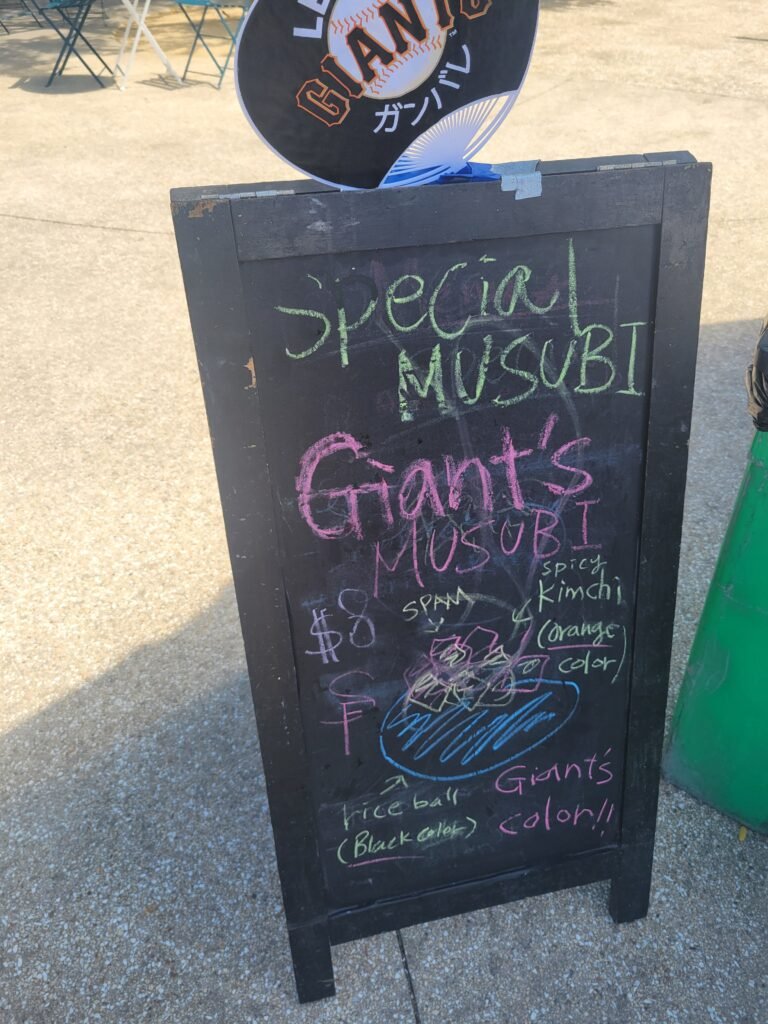 GIANTS
ガンバレ
Special
MUSUBI
Giant's
MUSUBI
spicy
Kimchi
(orange
color)
SPAM
$8
SF
rice ball
(Black color)
Giant's
color!!